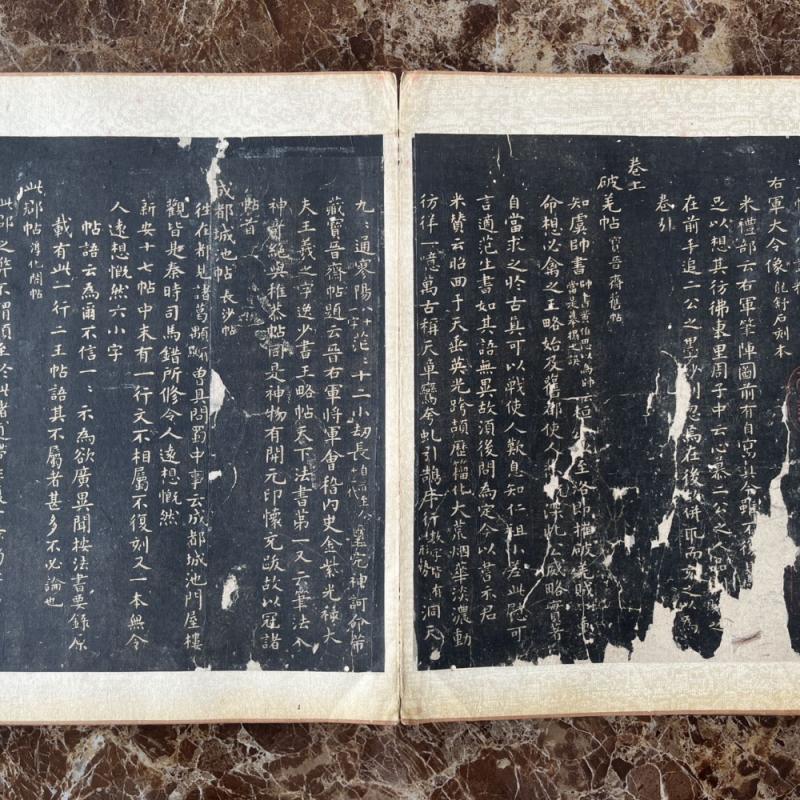 右軍大令像 此舒石刻本
米禮部云右軍筆陣圖前有自寫真今題
足以想其彷彿東里周子中云心慕二公之人
在前手追二公之墨妙則忽焉在後以併取而刻之以為
卷引
卷十
破羌帖 寶晉齋舊帖
知虞帥書 桓公至洛即摧破羌賊
命想必禽之王略始及舊都使人
自當求之於古真可以戰使人歎息知仁祖小差此慰可
言適范生書如其語無異故須後問為定今以書示君
米贊云昭回于天垂英光跨頡歷籀化大荒烟華淡濃動
彷徉一噫萬古稱天章鸞夸虬引鵲序行 洞天
九通寥陽 十二小劫長 璽完神訶命芾
藏寶晉齋帖題云晉右軍將軍會稽內史金紫光祿大
夫王羲之字逸少書王略帖天下法書第一又云筆法入
神奇絕與稚恭帖同是神物有開元印懷充跋故以冠諸
帖首
成都城池帖 長沙帖
往在都見諸葛顒曾具問蜀中事云成都城池門屋樓
觀皆是秦時司馬錯所修令人遠想慨然
新安十七帖中末有一行文不相屬不復刻又一本無令
人遠想慨然六小字
帖語云為爾不信一一示為欲廣異聞按法書要錄原
載有此一行二王帖語其不屬者甚多不必論也
此郡帖 淳化閣帖
此郡之弊不謂頓至於此諸